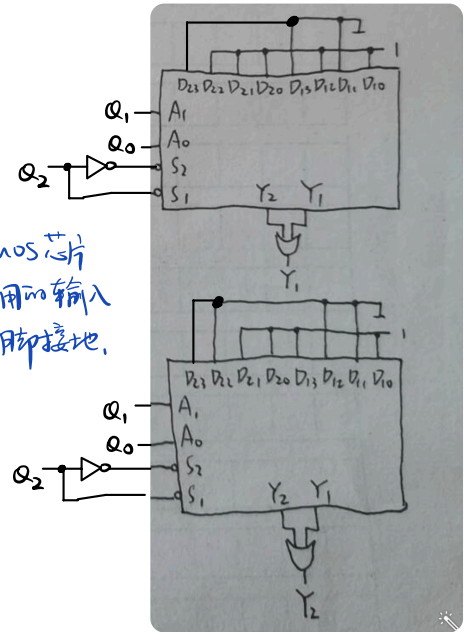 1
D23 D22 D21 D20 D13 D12 D11 D10
Q1 A1
Q0 A0
Q2 S2
S1
Y2 Y1
Y1
MOS芯片
用的输入
脚接地.
1
D23 D22 D21 D20 D13 D12 D11 D10
Q1 A1
Q0 A0
Q2 S2
S1
Y2 Y1
Y2